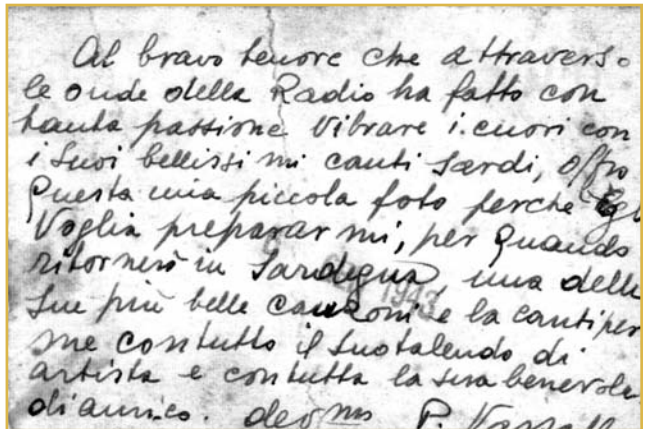 Al bravo tenore che attraverso
le onde della Radio ha fatto con
tanta passione vibrare i cuori con
i Suoi bellissimi canti Sardi, offro
Questa mia piccola foto perchè Egli
Voglia preparar mi, per Quando
ritornerò in Sardegna, una delle
Sue più belle canzoni e la canti per
me con tutto il Suo talendo di
artista e con tutta la sua benevole
di amico. P.
1943